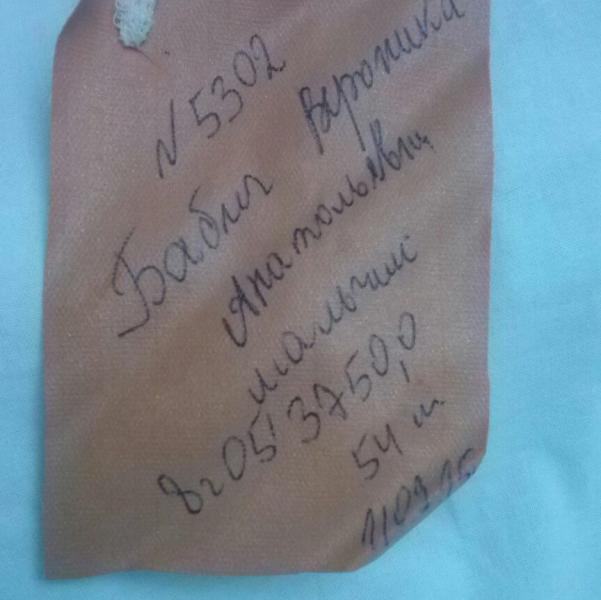 N 5302
Бабич Вероника
Анатольевн
мальчик
8г05' 3750,0
54 см
110915